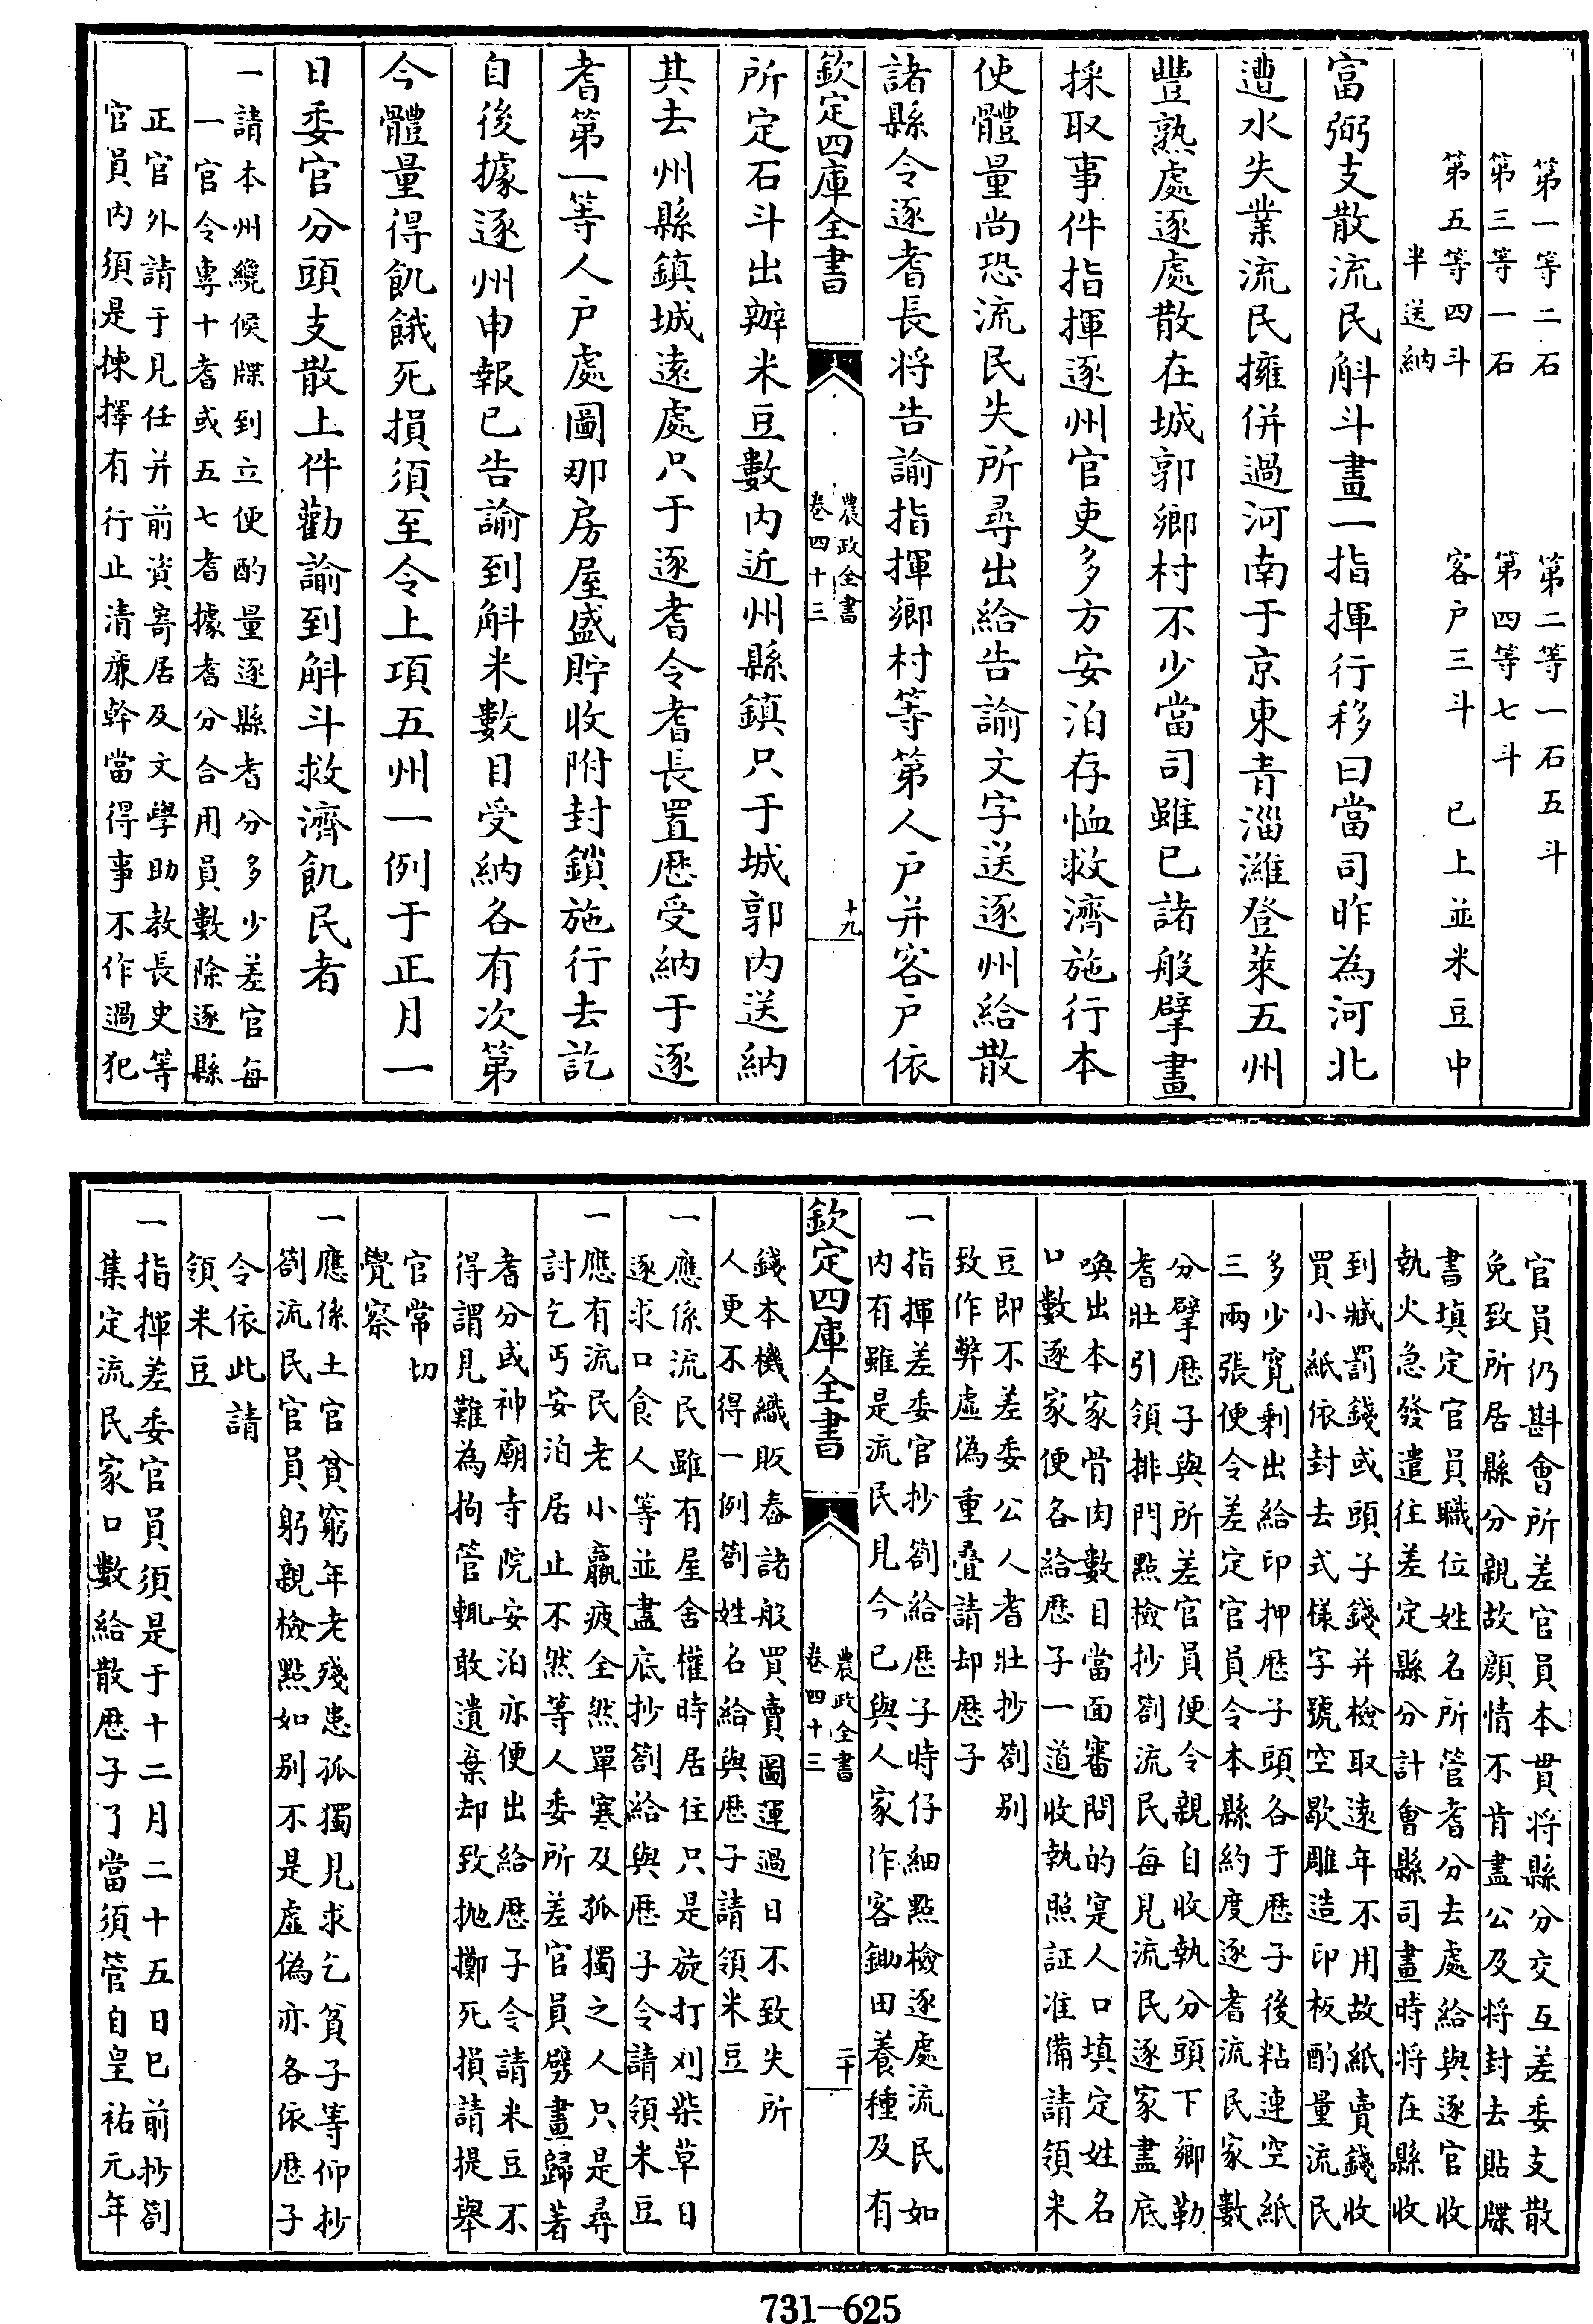 第一等二石　第二等一石五斗
第三等一石　第四等七斗
第五等四斗　客戸三斗　已上並米豆中
半送納
富弼支散流民斛斗畫一指揮行移曰當司昨為河北
遭水失業流民擁併過河南于京東青淄濰登萊五州
豐熟處逐處散在城郭鄉村不少當司雖已諸般擘畫
採取事件指揮逐州官吏多方安泊存恤救濟施行本
使體量尚恐流民失所尋出給告諭文字送逐州給散
諸縣令逐耆長將告諭指揮鄉村等第人戸并客戸依
欽定四庫全書
農政全書
卷四十三
十九
所定石斗出辦米豆數内近州縣鎮只于城郭内送納
其去州縣鎮城遠處只于逐耆令耆長置歴受納于逐
耆第一等人戸處圖那房屋盛貯收附封鎖施行去訖
自後據逐州申報已告諭到斛米數目受納各有次第
今體量得飢餓死損須至令上項五州一例于正月一
日委官分頭支散上件勸諭到斛斗救濟飢民者
一請本州纔候牒到立便酌量逐縣耆分多少差官每
一官令專十耆或五七耆據耆分合用員數除逐縣
正官外請于見任并前資寄居及文學助教長史等
官員内須是揀擇有行止清廉幹當得事不作過犯
官員仍斟會所差官員本貫將縣分交互差委支散
免致所居縣分親故顔情不肯盡公及將封去貼牒
書填定官員職位姓名所管耆分去處給與逐官收
執火急發遣往差定縣分計會縣司畫時將在縣收
到贓罰錢或頭子錢并檢取遠年不用故紙賣錢收
買小紙依封去式樣字號空歇雕造印板酌量流民
多少寛剩出給印押歴子頭各于歴子後粘連空紙
三兩張便令差定官員令本縣約度逐耆流民家數
分擘歴子與所差官員便令親自收執分頭下鄉勒
耆壯引領排門點檢抄劄流民每見流民逐家盡底
喚出本家骨肉數目當面審問的寔人口填定姓名
口數逐家便各給歴子一道收執照証准備請領米
豆即不差委公人耆壯抄劄别
致作弊虛偽重疊請却歴子
一指揮差委官抄劄給歴子時仔細點檢逐處流民如
内有雖是流民見今已與人家作客鋤田養種及有
欽定四庫全書
農政全書
卷四十三
二十
錢本機織販舂諸般買賣圖運過日不致失所
人更不得一例劄姓名給與歴子請領米豆
一應係流民雖有屋舍權時居住只是旋打刈柴草日
逐求口食人等並盡底抄劄給與歴子令請領米豆
一應有流民老小羸疲全然單寒及孤獨之人只是尋
討乞丐安泊居止不然等人委所差官員劈畫歸著
耆分或神廟寺院安泊亦便出給歴子令請米豆不
得謂見難為拘管輒敢遺棄却致抛擲死損請提舉
官常切
覺察
一應係土官貧窮年老殘患孤獨見求乞貧子等仰抄
劄流民官員躬親檢點如别不是虛偽亦各依歴子
令依此請
領米豆
一指揮差委官員須是于十二月二十五日巳前抄劄
集定流民家口數給散歴子了當須管自皇祐元年
731—625